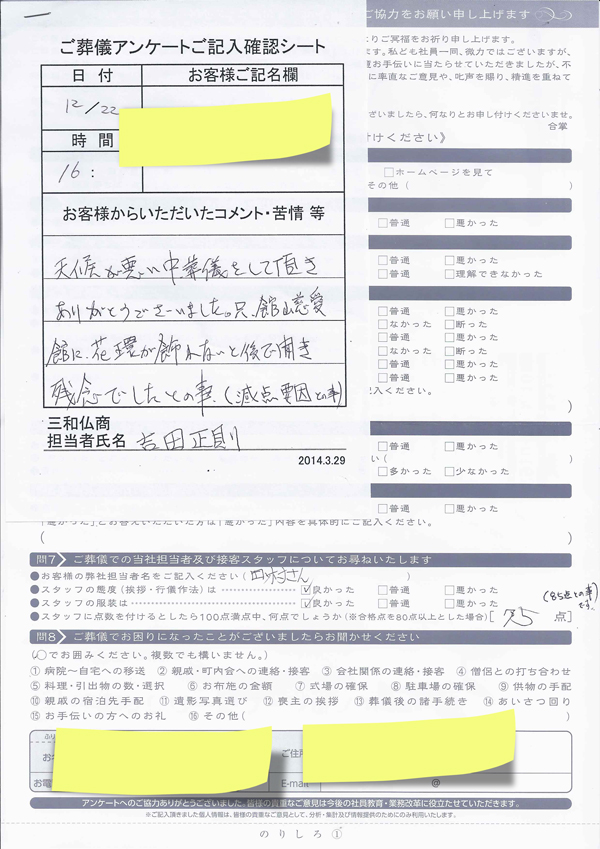 ご協力をお願い申し上げます
ご葬儀アンケートご記入確認シート
日付
お客様ご記名欄
12/22
時間
16:
お客様からいただいたコメント・苦情 等
天候が悪い中葬儀をして頂き
ありがとうございました。只、館山慈愛
館に、花環が飾れないと後で聞き
残念でしたとの事、(減点要因との事)
三和仏商
担当者氏名 吉田正則
2014.3.29
りご冥福をお祈り申し上げます。
ます。私ども社員一同、微力ではございますが、
お手伝いに当たらせていただきましたが、不
に率直なご意見や、叱声を賜り、精進を重ねて
ざいましたら、何なりとお申し付けくださいませ。
合掌
付けください》
□ホームページを見て
その他( )
□普通 □悪かった
□普通 □悪かった
□普通 □理解できなかった
□普通 □悪かった
□なかった □断った
□普通 □悪かった
□なかった □断った
□普通 □悪かった
□普通 □悪かった
記入ください。
)
□普通 □悪かった
い( )
□多かった □少なかった
□普通 □悪かった
「悪かった」とお答えいただいた方は「悪かった」内容を具体的にご記入ください。
( )
問7 ご葬儀での当社担当者及び接客スタッフについてお尋ねいたします
●お客様の弊社担当者名をご記入ください( 田村さん )
●スタッフの態度(挨拶・行儀作法)は ☑良かった □普通 □悪かった
●スタッフの服装は ☑良かった □普通 □悪かった
(85点との事です。)
●スタッフに点数を付けるとしたら100点満点中、何点でしょうか(※合格点を80点以上とした場合)[ 85 点]
問8 ご葬儀でお困りになったことがございましたらお聞かせください
(○でお囲みください。複数でも構いません。)
①病院〜自宅への移送 ②親戚・町内会への連絡・接客 ③会社関係の連絡・接客 ④僧侶との打ち合わせ
⑤料理・引出物の数・選択 ⑥お布施の金額 ⑦式場の確保 ⑧駐車場の確保 ⑨供物の手配
⑩親戚の宿泊先手配 ⑪遺影写真選び ⑫喪主の挨拶 ⑬葬儀後の諸手続き ⑭あいさつ回り
⑮お手伝いの方へのお礼 ⑯その他( )
ふり
ご住所
お電
E-mail @
アンケートへのご協力ありがとうございました。皆様の貴重なご意見は今後の社員教育・業務改革に役立たせていただきます。
※ご記入頂きました個人情報は、皆様の貴重なご意見として、分析・集計及び情報提供のためにのみ利用いたします。
のりしろ①